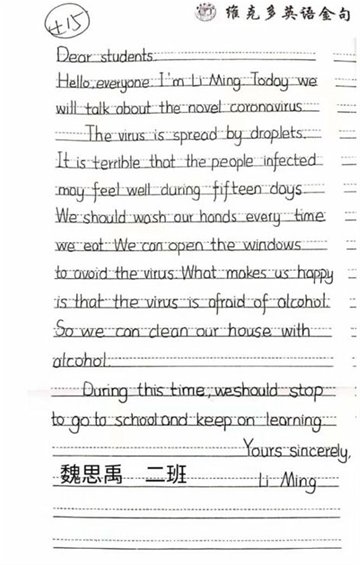 +15
维克多英语金句
Dear students.
Hello, everyone I'm Li Ming Today we
will talk about the novel coronavirus
The virus is spread by droplets.
It is terrible that the people infected
may feel well during fifteen days
We should wash our hands every time
we eat We can open the windows
to avoid the virus. What makes us happy
is that the virus is afraid of alcohol.
So we can clean our house with
alcohol.
During this time, weshould stop
to go to school and keep on learning
Yours sincerely,
魏思禹 二班
Li Ming